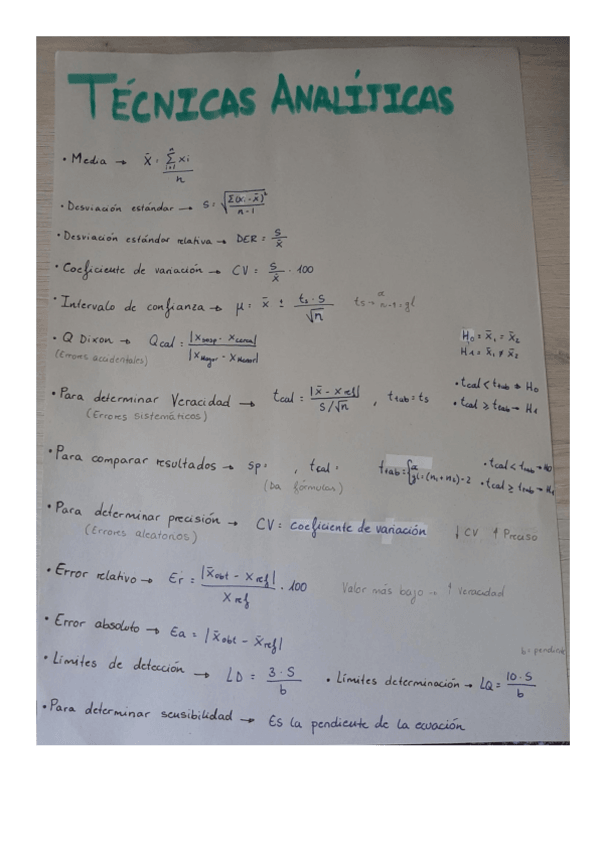 TÉCNICAS ANALÍTICAS
• Media → X̄ = Σ(i=1 → n) xi / n
• Desviación estándar → S = √(Σ(xi - x̄)² / n-1)
• Desviación estándar relativa → DER = S / x̄
• Coeficiente de variación → CV = S / x̄ · 100
• Intervalo de confianza → μ = x̄ ± ts · S / √n
ts → α n-1 = gl
• Q Dixon → Qcal = |Xsosp - Xcercano| / |XMayor - XMenor|
(Errores accidentales)
H0 = x̄1 = x̄2
H1 = x̄1 ≠ x̄2
• Para determinar Veracidad → tcal = |x̄ - xref| / S/√n , ttab = ts
(Errores sistemáticos)
• tcal < ttab → H0
• tcal ≥ ttab → H1
• Para comparar resultados → sp = , tcal =
(Da fórmulas)
ttab = { α gl = (n1 + n2) - 2
• tcal < ttab → H0
• tcal ≥ ttab → H1
• Para determinar precisión → CV = Coeficiente de variación ↓ CV ↑ Preciso
(Errores aleatorios)
• Error relativo → Er = |x̄obt - xref| / Xref · 100 Valor más bajo → ↑ Veracidad
• Error absoluto → Ea = |x̄obt - x̄ref|
b = pendiente
• Límites de detección → LD = 3 · S / b • Límites determinación → LQ = 10 · S / b
• Para determinar sensibilidad → Es la pendiente de la ecuación